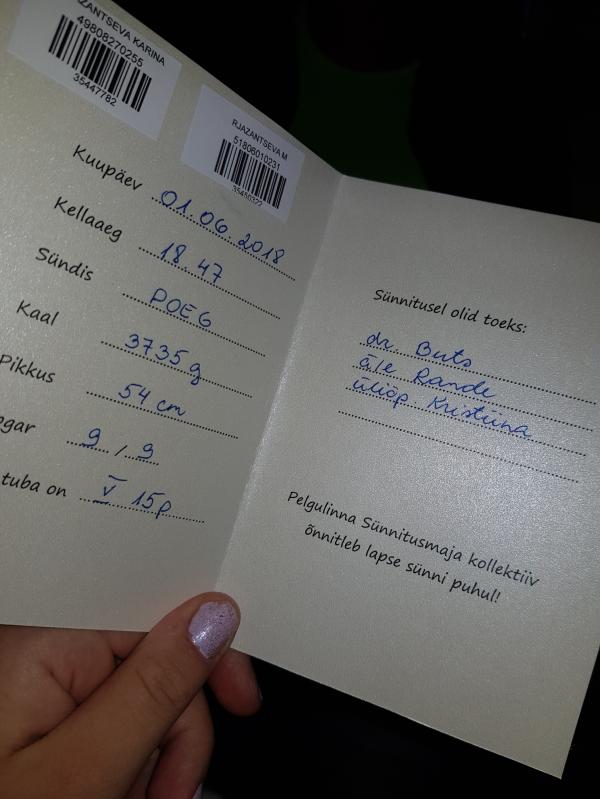 ZANTSEVA KARINA
49808270255
35447782
RJAZANTSEVA M
51806010231
35450322
Kuupäev 01.06.2018
Kellaaeg 18.47
Sündis POEG
Kaal 3735 g
Pikkus 54 cm
gar 9 / 9
tuba on V 15p
Sünnitusel olid toeks:
dr. Buts
ä/e Rande
üliõp Kristiina
Pelgulinna Sünnitusmaja kollektiiv
õnnitleb lapse sünni puhul!